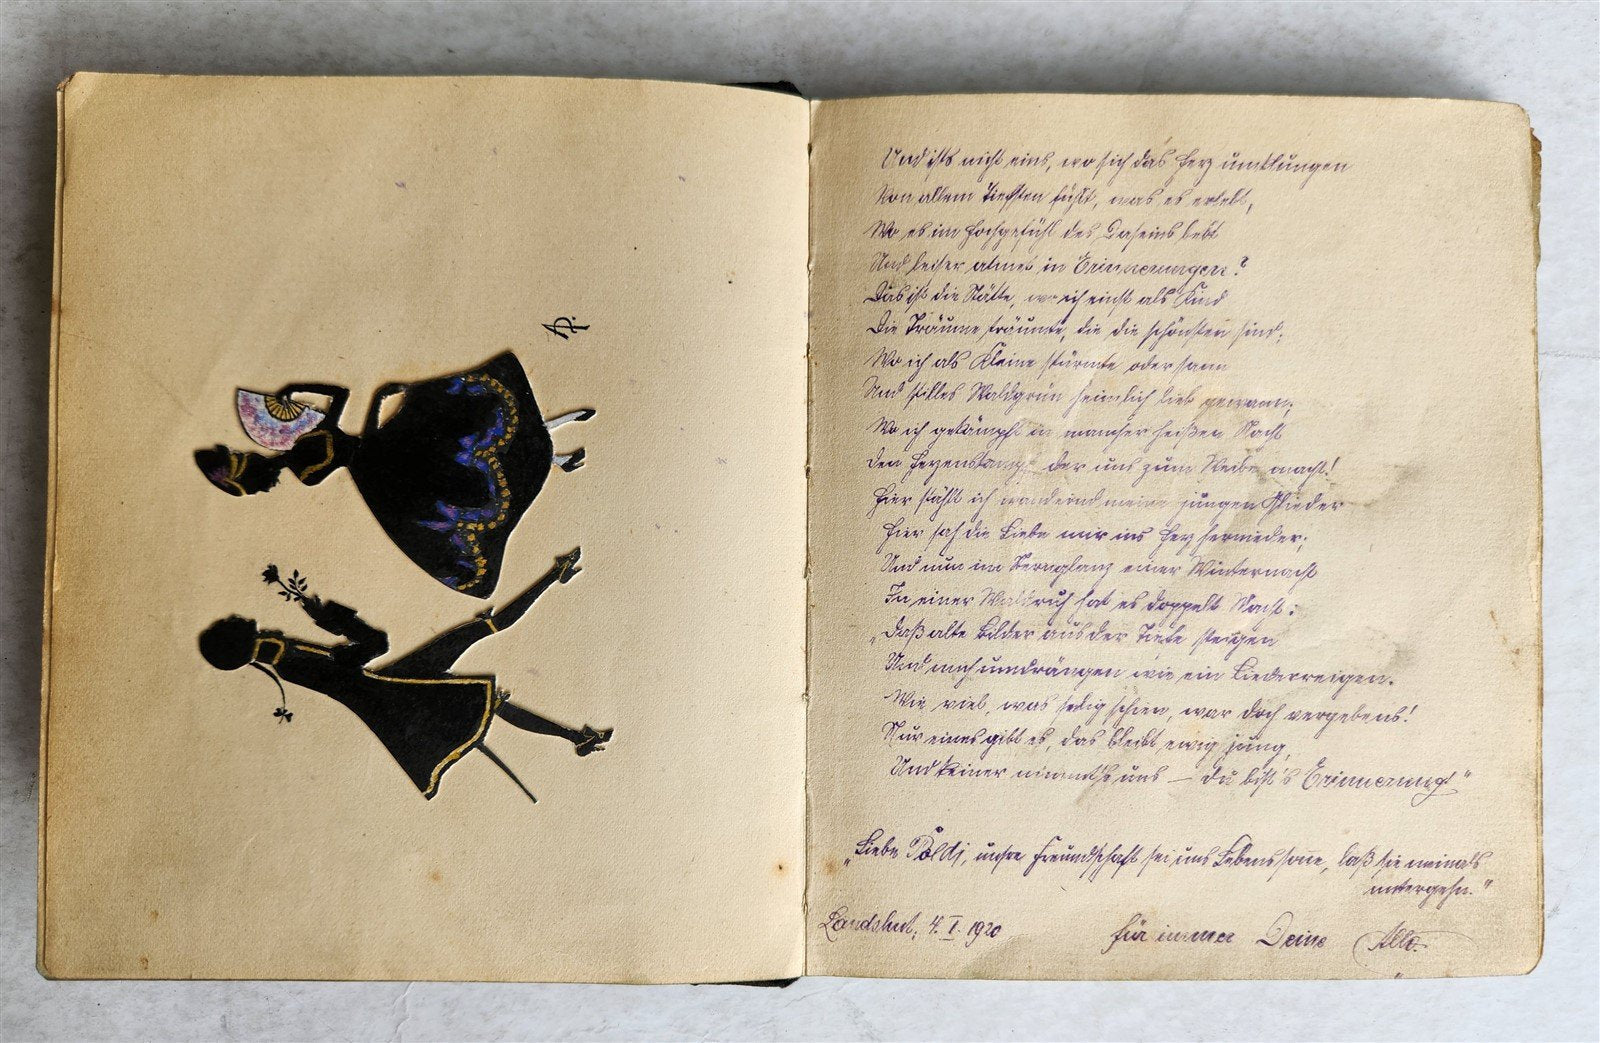 AP.
Und ists nicht eins, wo sich das Herz umklungen
Von allem Tiefsten fühlt, was es erlebt,
Wo es im Hochgefühl des Daseins bebt
Und leiser atmet in Erinnerungen?
Das ist die Stätte, wo ich einst als Kind
Die Träume träumte, die die schönsten sind;
Wo ich als Kleine stürmte oder sann
Und stilles Waldgrün heimlich lieb gewann;
Wo ich gekämpft in mancher heißen Nacht
Den Herzenskampf der uns zum Weibe macht!
Hier stählt ich wandernd meine jungen Glieder
Hier sah die Liebe mir ins Herz hernieder;
Und nun im Sternglanz einer Winternacht
In einer Waldruh hat es doppelt Macht:
„Daß alte Bilder aus der Tiefe steigen
Und mich umdrängen wie ein Liederreigen.
Wie viel, was selig schien, war doch vergebens!
Nur eines gibt es, das bleibt ewig jung,
Und keiner nimmt's uns – du bist's Erinnerung!"
„Liebe Poldi, unsre Freundschaft sei uns Lebenssonne, laß sie niemals
untergehn."
Landshut, 4. I. 1920
Für immer Deine